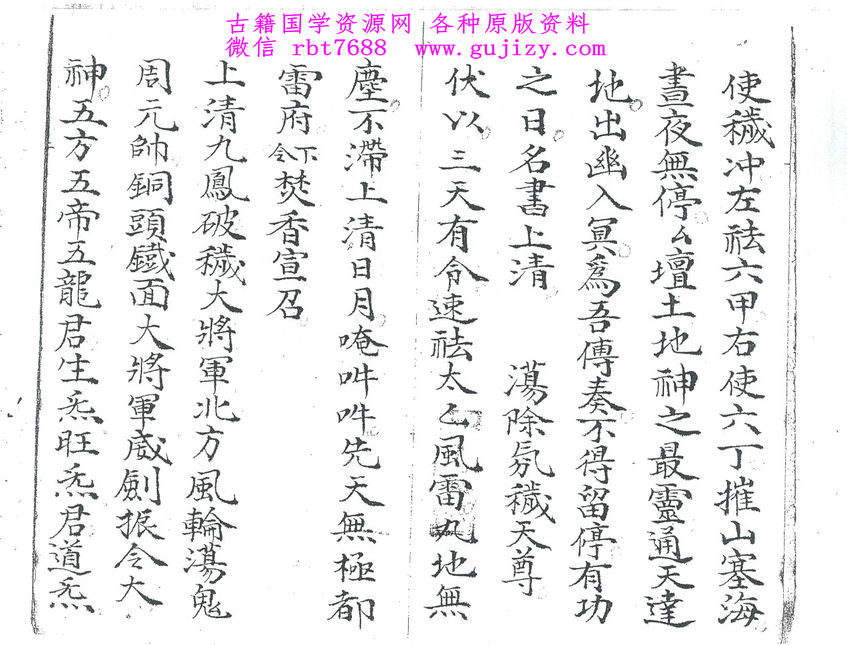 古籍国学资源网 各种原版资料
微信 rbt7688 www.gujizy.com
使穢冲左祛六甲右使六丁摧山塞海
晝夜無停厶壇土地神之最靈通天達
地出幽入冥爲吾傳奏不得留停有功
之日名書上清 蕩除氛穢天尊
伏以三天有令速祛太乙風雷九地無
塵不滯上清日月唵吽吽先天無極都
雷府令下焚香宣召
上清九鳳破穢大將軍北方風輪蕩鬼
周元帥銅頭鐵面大將軍威劍振令大
神五方五帝五龍君生炁旺炁君道炁